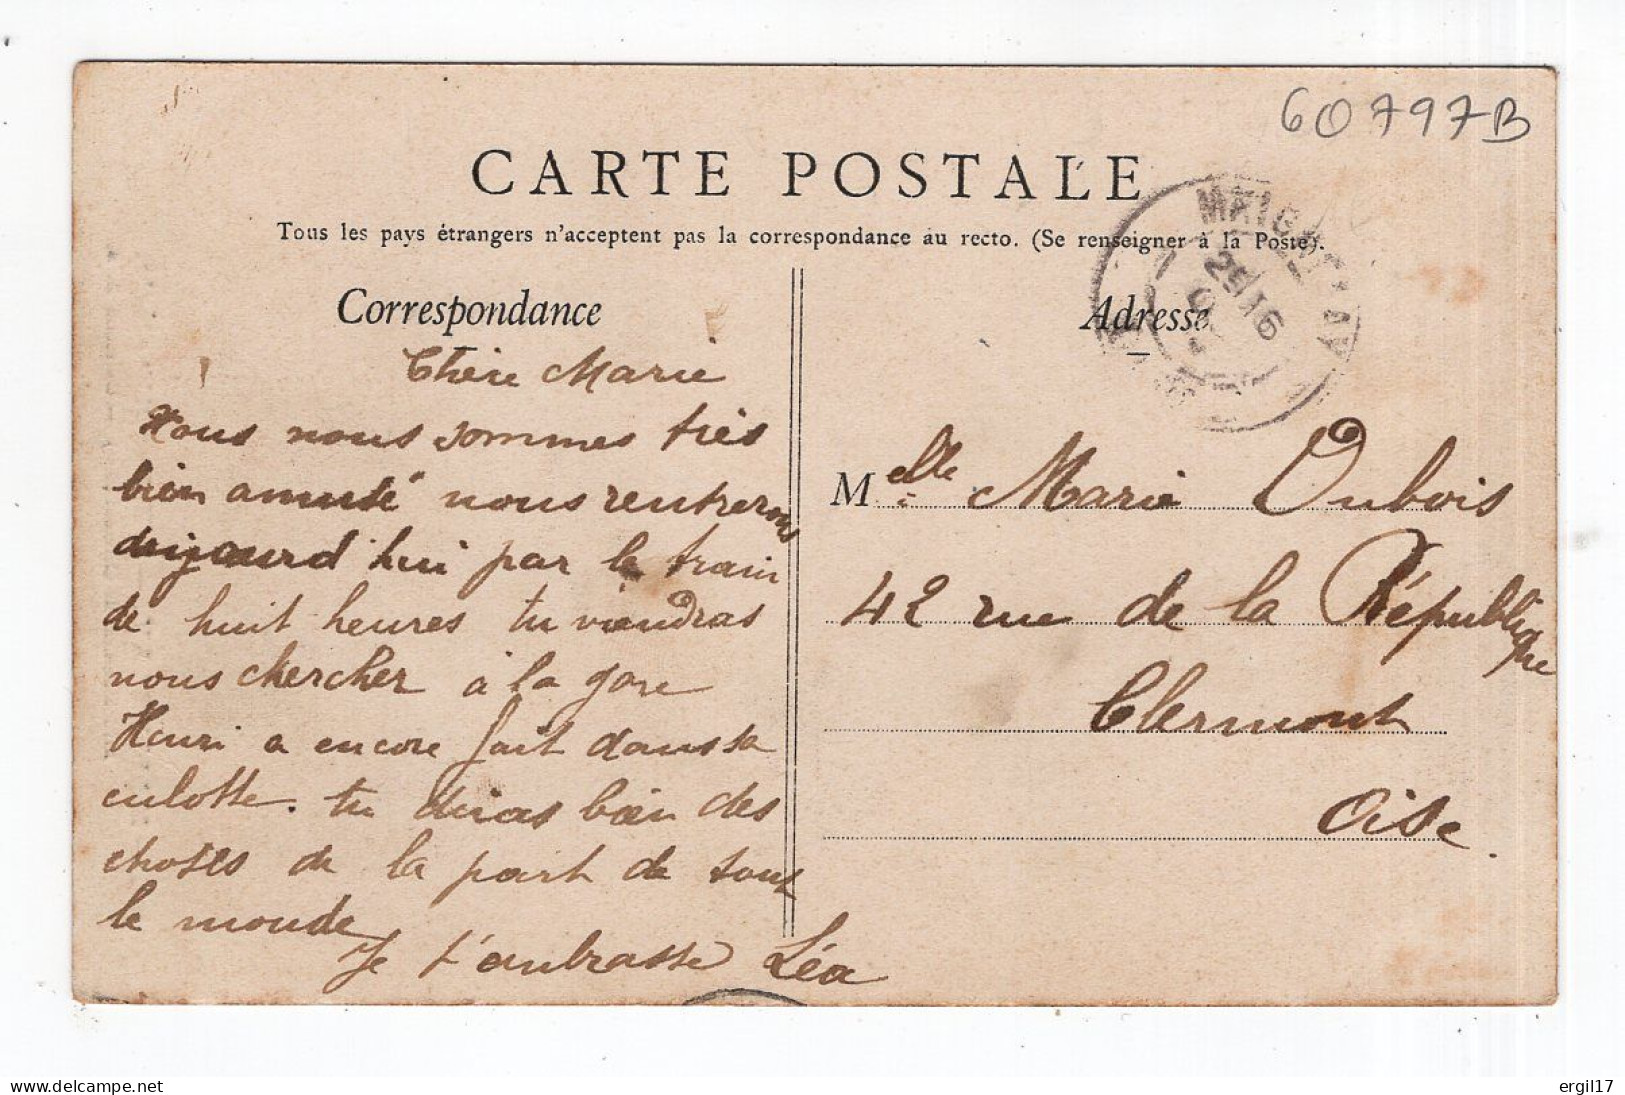 60797B
CARTE POSTALE
Tous les pays étrangers n'acceptent pas la correspondance au recto. (Se renseigner à la Poste).
Correspondance
Chère Marie
Nous nous sommes très
bien amusé nous rentrerons
aujourd'hui par le train
de huit heures tu viendras
nous chercher à la gare
Henri a encore fait dans sa
culotte. tu diras bien des
choses de la part de tout
le monde
Je t'embrasse Léa
Adresse
Melle Marie Dubois
42 rue de la République
Clermont
Oise.
delcampe.net
ergil17